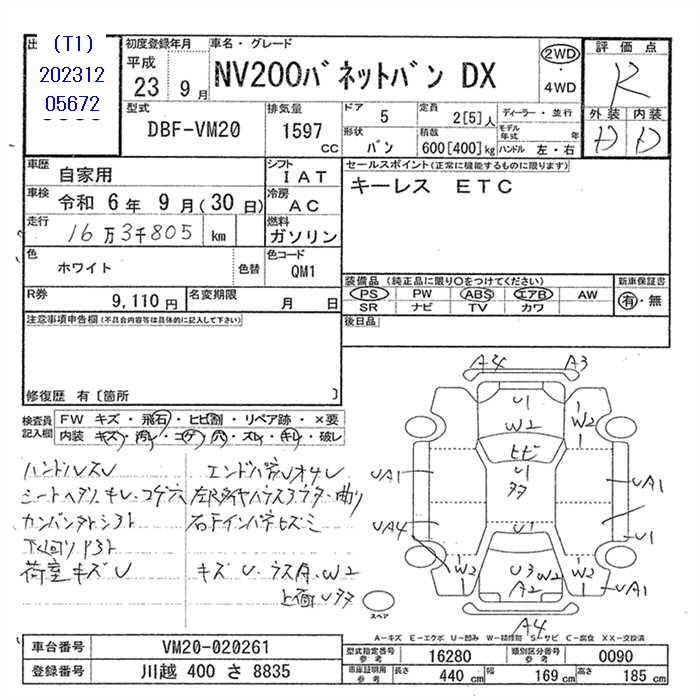 出
(T1)
202312
05672
初度登録年月
平成
23 9月
車名・グレード
NV200バネットバン DX
2WD
・
4WD
評価点
R
外装 内装
D D
型式
DBF-VM20
排気量
1597
cc
ドア
5
定員
2[5]人
ディーラー・並行
形状
バン
積載
600[400]kg
モデル年式 年
ハンドル 左・右
車歴
自家用
シフト
I AT
車検
令和 6年 9月(30日)
冷房
AC
走行
16万3千805 km
燃料
ガソリン
色
ホワイト
色替
色コード
QM1
R券
9,110円
名変期限
月 日
セールスポイント(正常に機能するものに限ります)
キーレス ETC
装備品(純正品に限り○をつけてください)
PS PW ABS エアB AW
SR ナビ TV カワ
新車保証書
有・無
後日品
注意事項申告欄(不具合内容等は具体的に記入して下さい)
修復歴 有〔箇所 〕
検査員記入欄
FW キズ・飛石・ヒビ割・リペア跡・×要
内装 キズ・汚レ・コゲ・穴・スレ・キレ・破レ
ハンドルスレ
荷室キズU
キズ
A4 A3
U1
W2
W2
W2
ヒビ
U1
UA1
UA1
UA4
U1
U1
W2
U3 W2
A2
W2
UA1
A4
スペア
A-キズ E-エクボ U-凹み W-補修跡 S-サビ C-腐食 XX-交換済
車台番号
VM20-020261
登録番号
川越 400 さ 8835
型式指定番号
参考
16280
類別区分番号
参考
0090
車庫証明用
参考
長さ
440 cm
幅
169 cm
高さ
185 cm